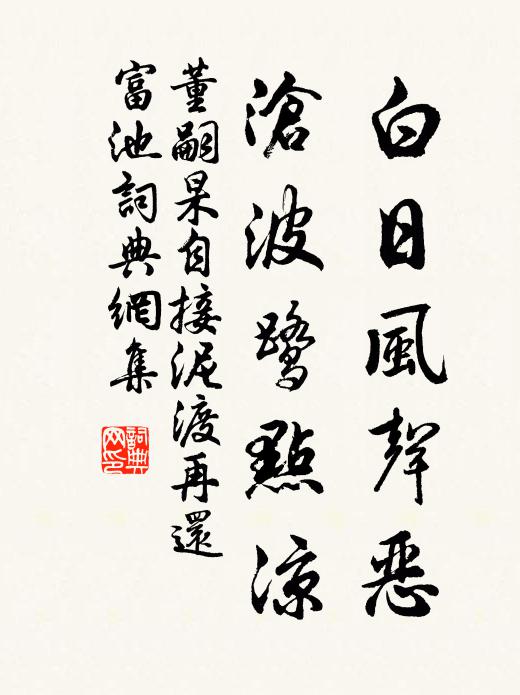 白日風聲惡
滄波鷺點涼
董嗣杲自接泥渡再還
富池詞典網集
詞典
网印